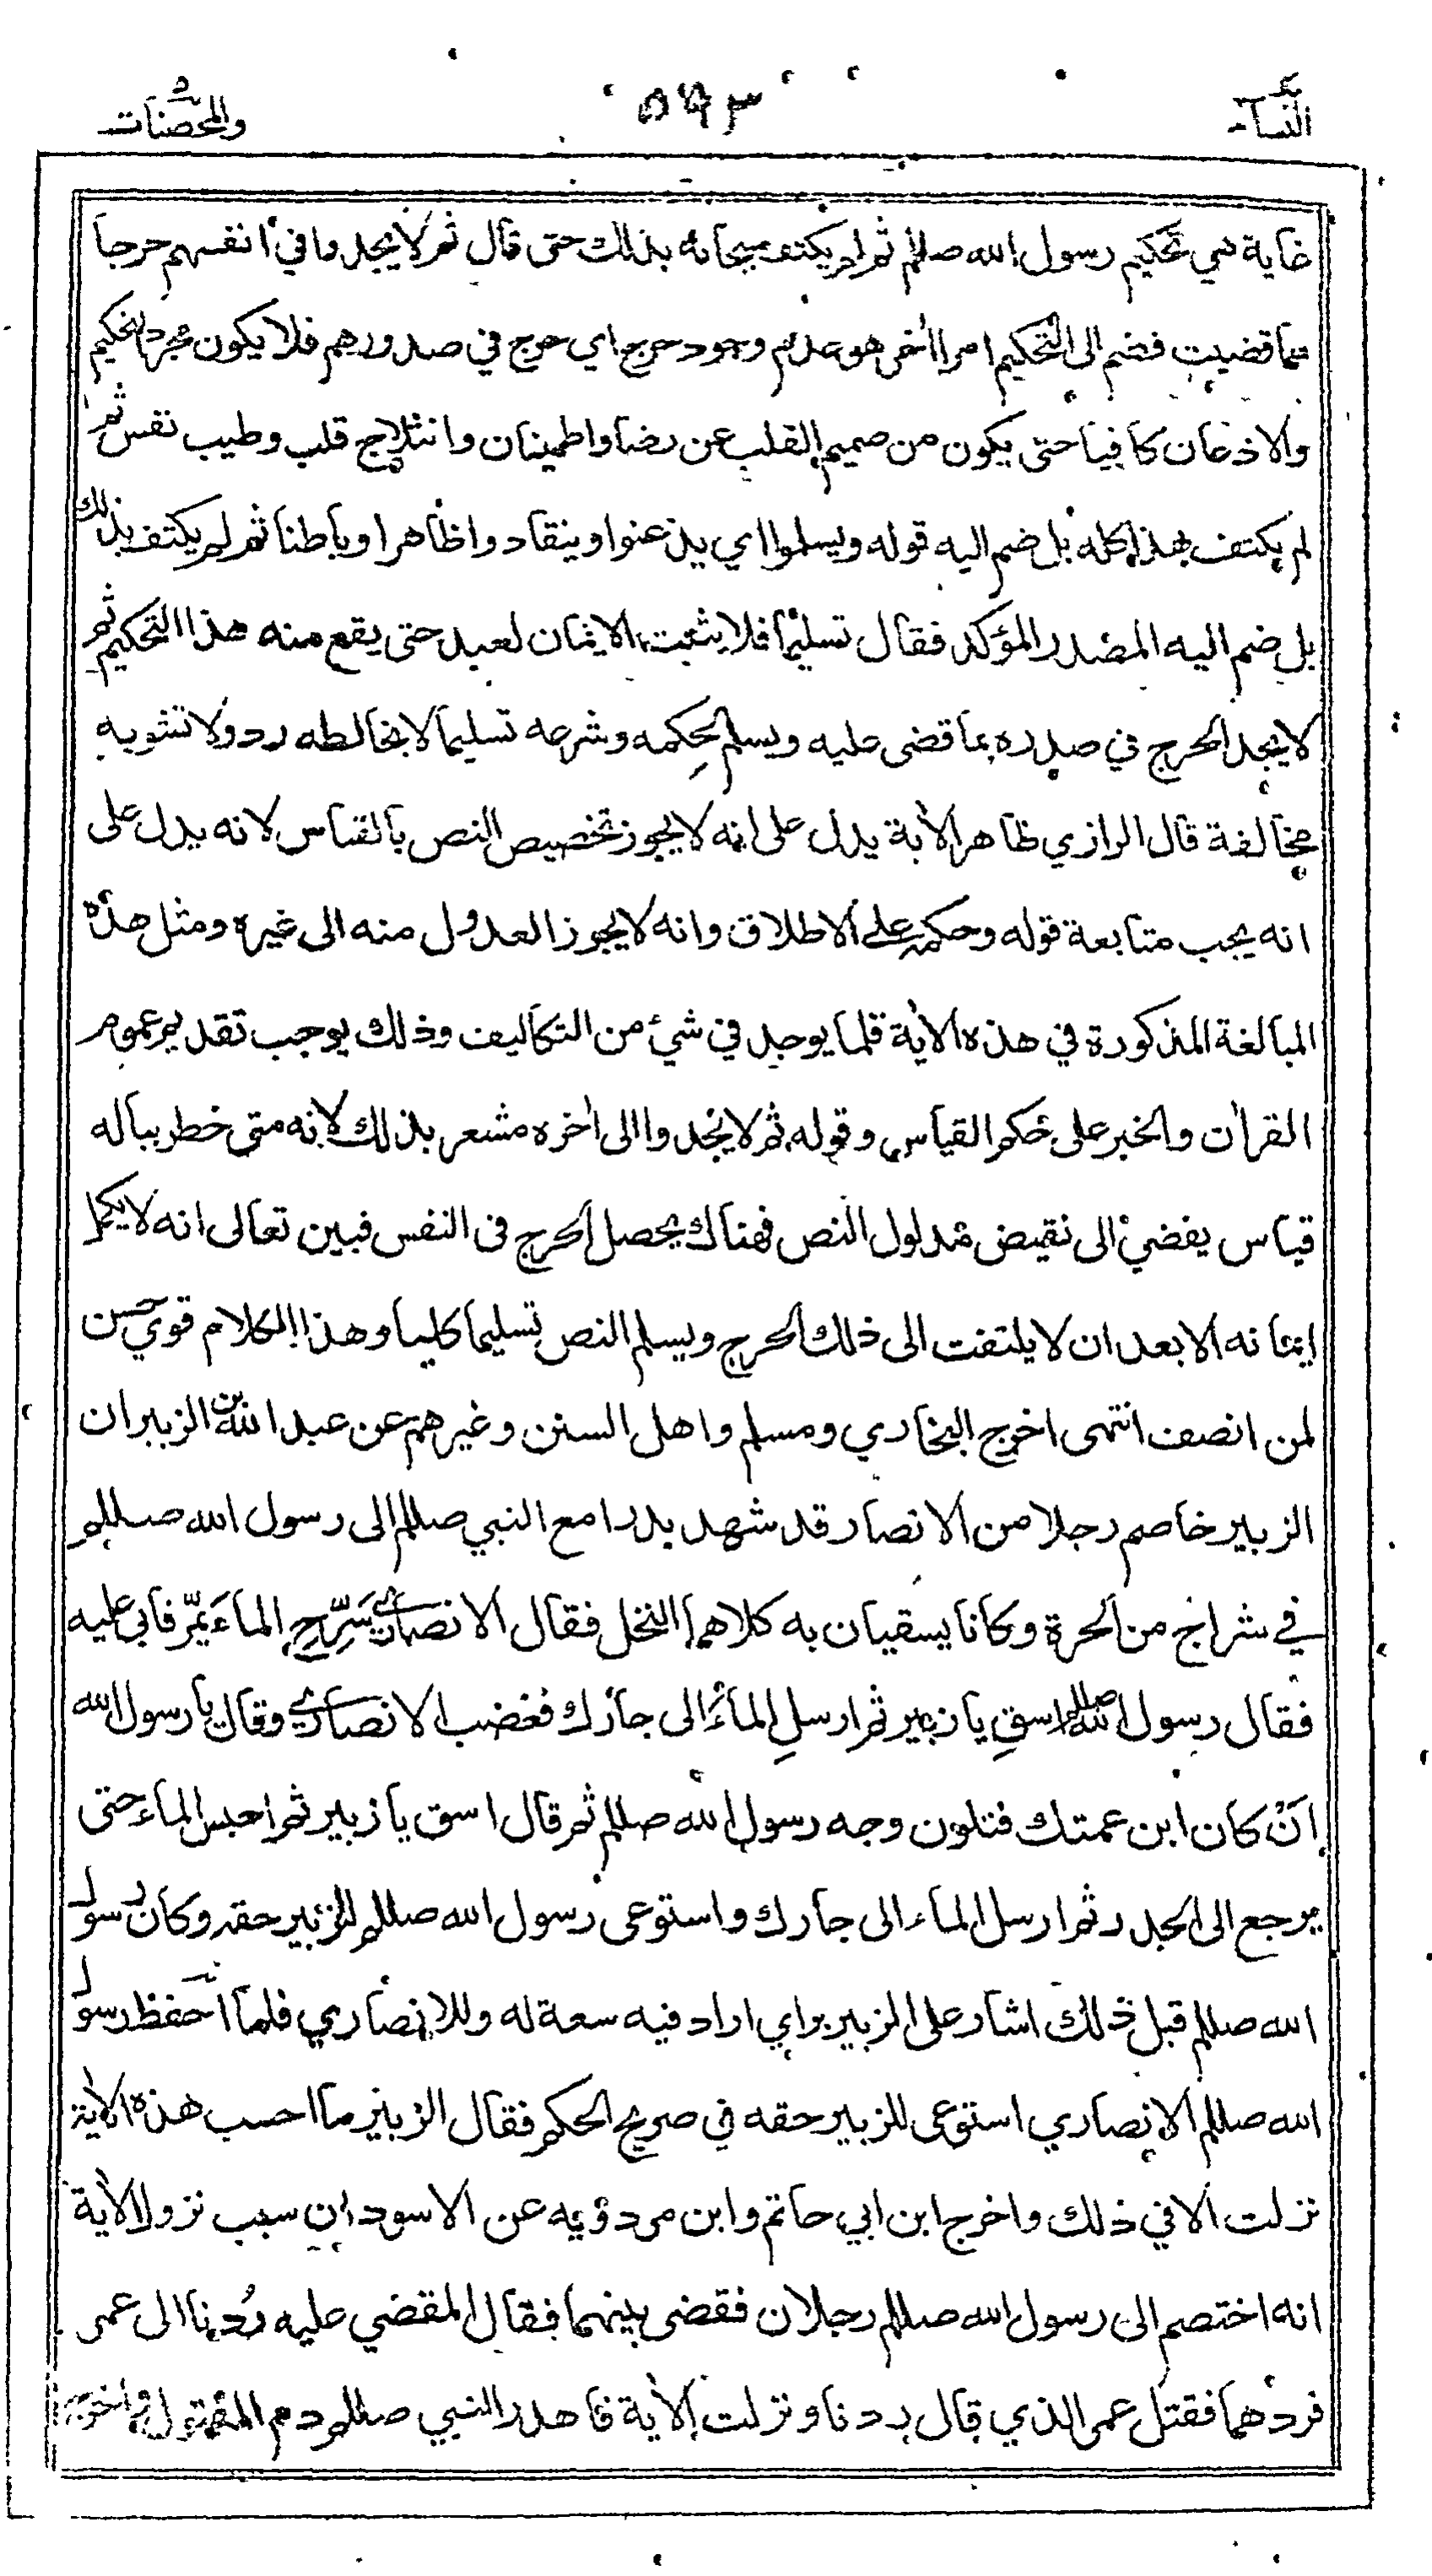 النسآء ٥٩٣ والمحصنات
غاية هي تحكيم رسول الله صللم ثم لم يكتف سبحانه بذلك حتى قال ثم لا يجدوا في انفسهم حرجا
مما قضيت فضم الى التحكيم امرا اٰخر هو عدم وجود حرج اي حرج في صدورهم فلا يكون مجرد التحكيم
والاذعان كافيا حتى يكون من صميم القلب عن رضا واطمينان وانثلاج قلب وطيب نفس ثم
لم يكتف بهذا كله بل ضم اليه قوله ويسلموا اي يذعنوا وينقادوا ظاهرا وباطنا ثم لم يكتف بذلك
بل ضم اليه المصدر المؤكد فقال تسليمًا فلا يثبت الايمان لعبد حتى يقع منه هذا التحكيم ثم
لا يجد الحرج في صدره بما قضى عليه ويسلم لحكمه وشرعه تسليما لا يخالطه رد ولا تشوبه
مخالفة قال الرازي ظاهر الاٰية يدل على انه لا يجوز تخصيص النص بالقياس لانه يدل على
انه يجب متابعة قوله وحكمه على الاطلاق وانه لا يجوز العدول منه الى غيره ومثل هذه
المبالغة المذكورة في هذه الاٰية قلما يوجد في شيء من التكاليف وذلك يوجب تقديم عموم
القراٰن والخبر على حكم القياس وقوله ثم لا يجدوا الى اٰخره مشعر بذلك لانه متى خطر بباله
قياس يفضي الى نقيض مدلول النص فهناك يحصل الحرج فى النفس فبين تعالى انه لا يكمل
ايمانه الا بعد ان لا يلتفت الى ذلك الحرج ويسلم النص تسليما كليا وهذا الكلام قوي حسن
لمن انصف انتهى اخرج البخاري ومسلم واهل السنن وغيرهم عن عبد الله بن الزبير ان
الزبير خاصم رجلا من الانصار قد شهد بدرا مع النبي صللم الى رسول الله صللم
في شراج من الحرة وكانا يسقيان به كلاهما النخل فقال الانصاري سَرِّحِ الماءَ يمرّ فابى عليه
فقال رسول الله صللم اسقِ يا زبير ثم ارسلِ الماءَ الى جارك فغضب الانصاري وقال يا رسول الله
اَنْ كان ابن عمتك فتلون وجه رسول الله صللم ثم قال اسق يا زبير ثم احبس الماء حتى
يرجع الى الجدر ثم ارسل الماء الى جارك واستوعى رسول الله صللم للزبير حقه وكان رسول
الله صللم قبل ذلك اشار على الزبير براي اراد فيه سعة له وللانصاري فلما احفظ رسول
الله صللم الانصاري استوعى للزبير حقه في صريح الحكم فقال الزبير ما احسب هذه الاٰية
نزلت الا في ذلك واخرج ابن ابي حاتم وابن مردويه عن الاسود ان سبب نزول الاٰية
انه اختصم الى رسول الله صللم رجلان فقضى بينهما فقال المقضي عليه رُدنا الى عمر
فردهما فقتل عمر الذي قال ردنا ونزلت الاٰية فاهدر النبي صللم دم المقتول واخرج